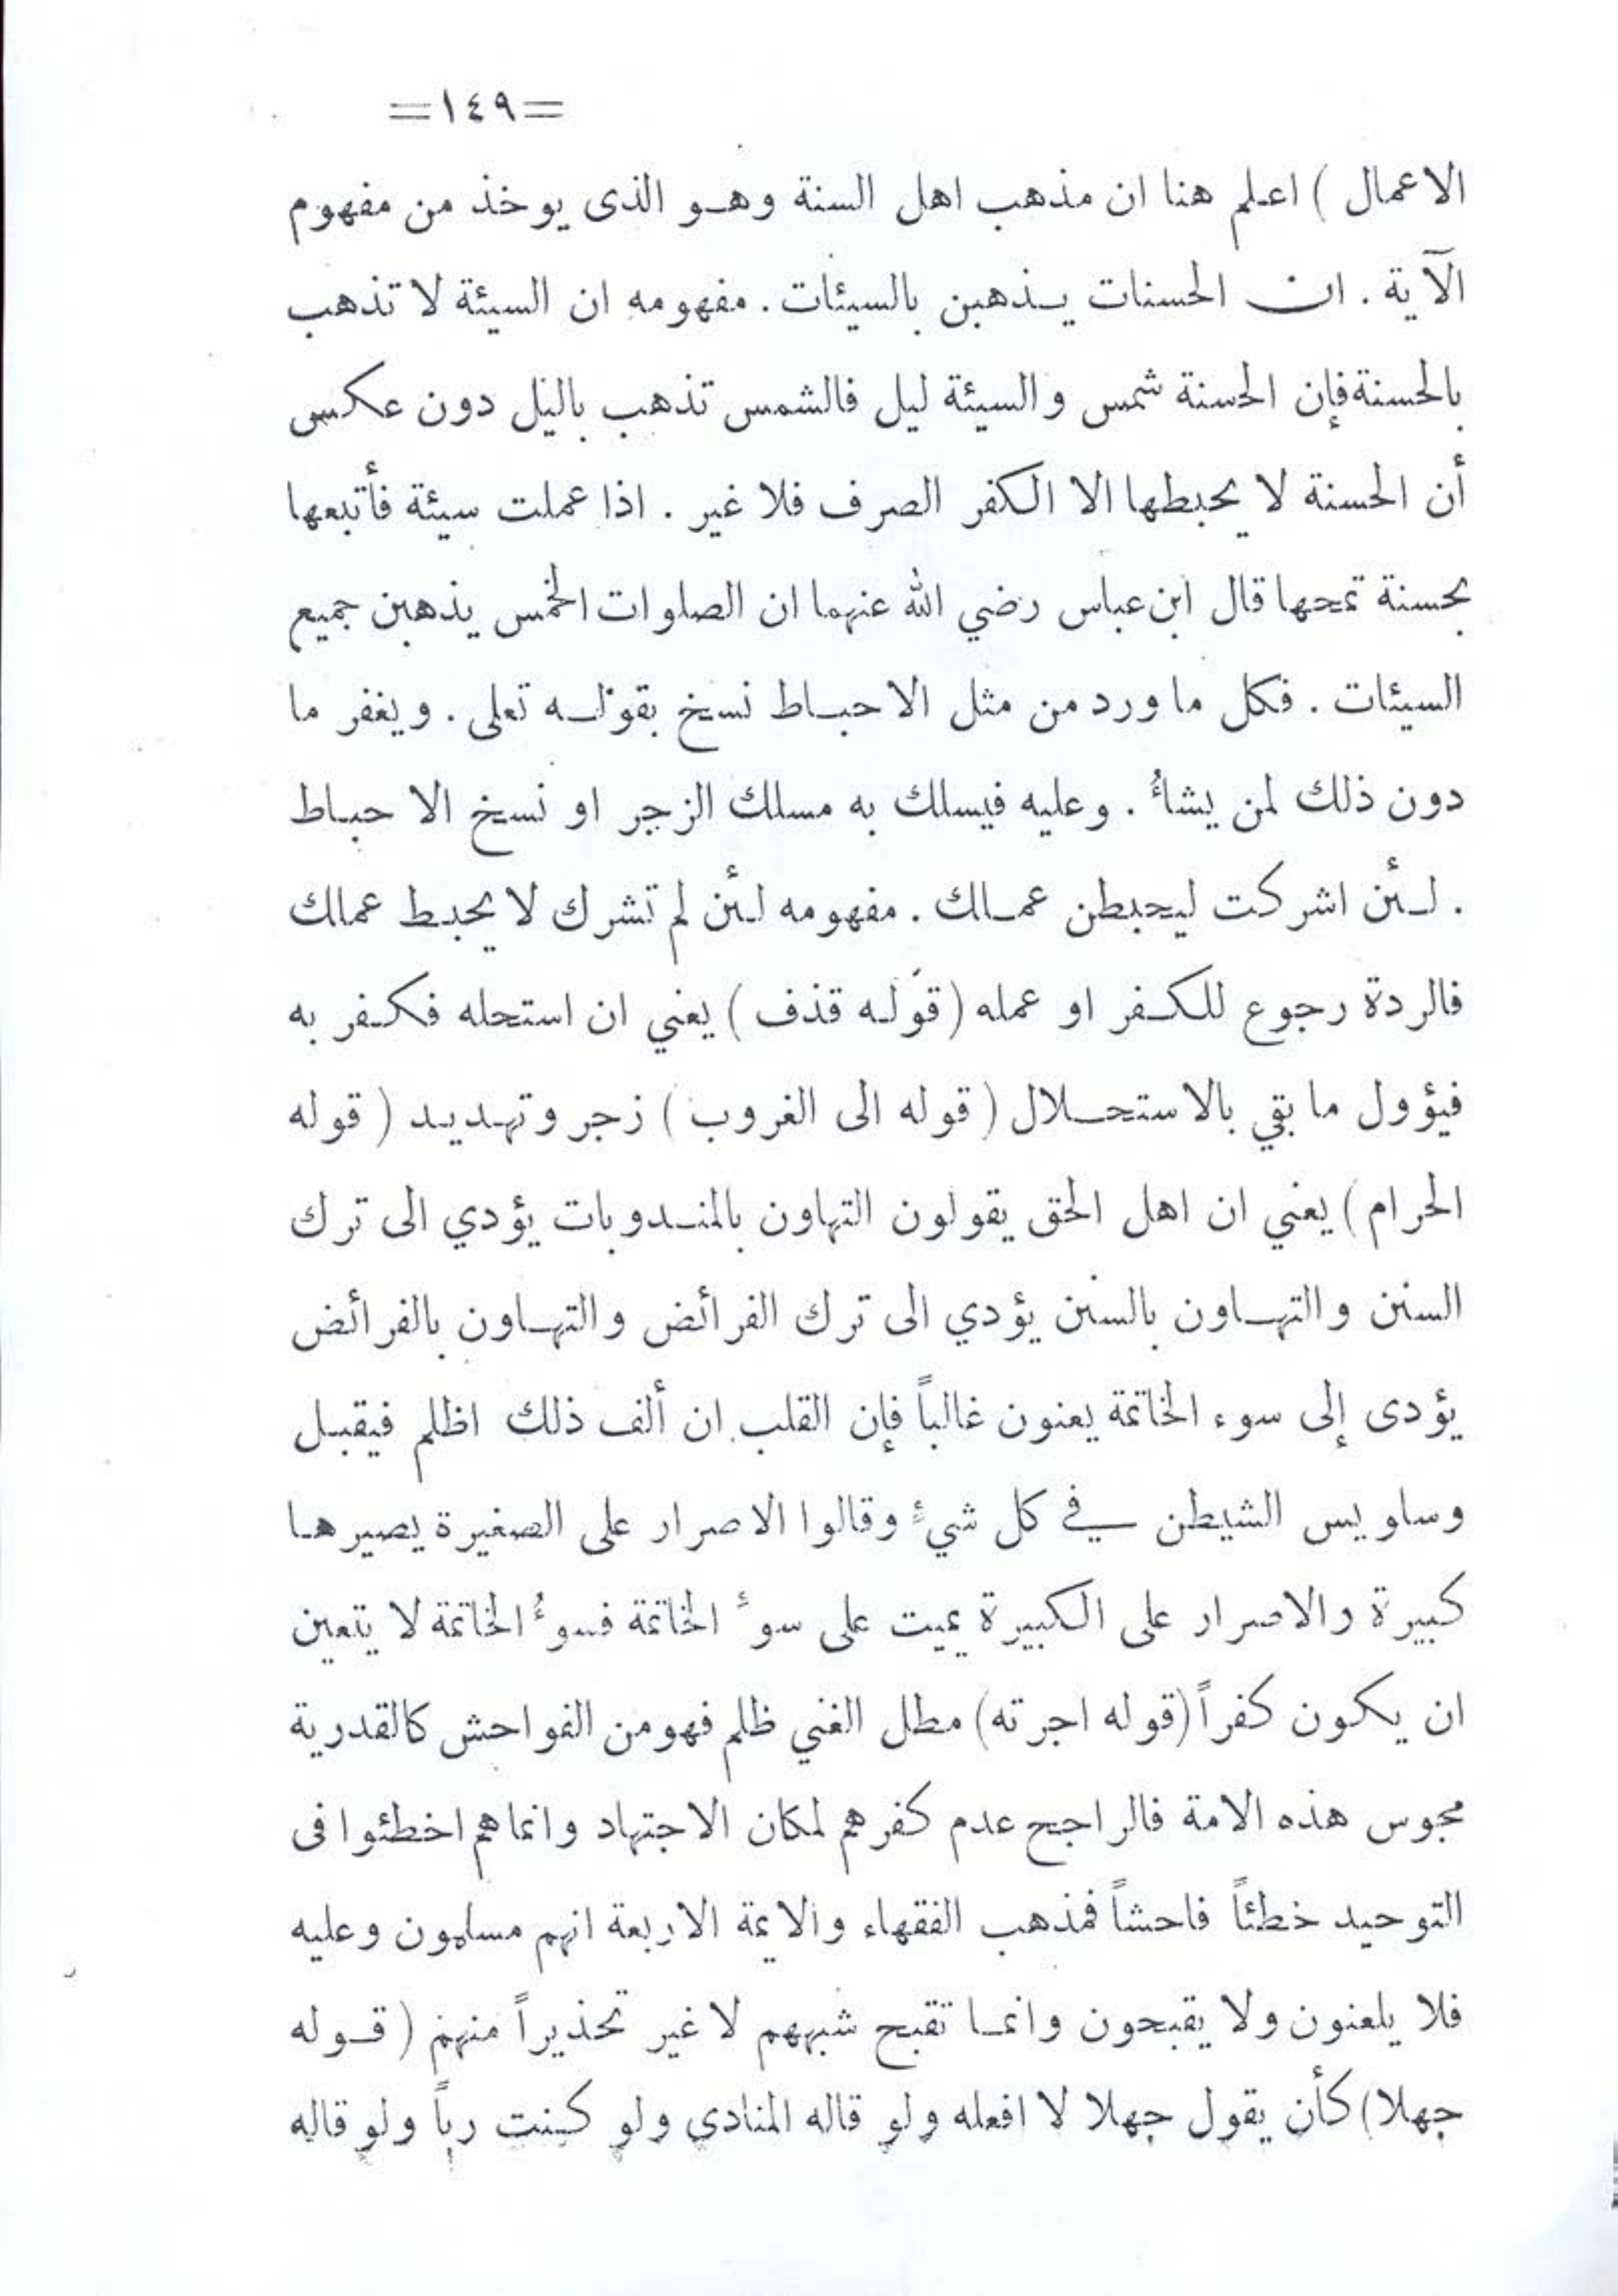 =١٤٩=
الاعمال ) اعلم هنا ان مذهب اهل السنة وهو الذى يوخذ من مفهوم
الآية . ان الحسنات يذهبن بالسيئات . مفهومه ان السيئة لا تذهب
بالحسنة فإن الحسنة شمس والسيئة ليل فالشمس تذهب باليل دون عكس
أن الحسنة لا يحبطها الا الكفر الصرف فلا غير . اذا عملت سيئة فأتبعها
بحسنة تمحها قال ابن عباس رضي الله عنهما ان الصلوات الخمس يذهبن جميع
السيئات . فكل ما ورد من مثل الاحباط نسخ بقوله تعلى . ويغفر ما
دون ذلك لمن يشاءُ . وعليه فيسلك به مسلك الزجر او نسخ الاحباط
. لئن اشركت ليحبطن عملك . مفهومه لئن لم تشرك لا يحبط عملك
فالردة رجوع للكفر او عمله (قوله قذف ) يعني ان استحله فكفر به
فيؤول ما بقي بالاستحلال ( قوله الى الغروب ) زجر وتهديد ( قوله
الحرام ) يعني ان اهل الحق يقولون التهاون بالمندوبات يؤدي الى ترك
السنن والتهاون بالسنن يؤدي الى ترك الفرائض والتهاون بالفرائض
يؤدى إلى سوء الخاتمة يعنون غالباً فإن القلب ان ألف ذلك اظلم فيقبل
وساويس الشيطن في كل شيءٍ وقالوا الاصرار على الصغيرة يصيرها
كبيرة والاصرار على الكبيرة يميت على سوءِ الخاتمة فسوءُ الخاتمة لا يتعين
ان يكون كفراً (قوله اجرته) مطل الغني ظلم فهو من الفواحش كالقدرية
مجوس هذه الامة فالراجح عدم كفرهم لمكان الاجتهاد وانما هم اخطئوا فى
التوحيد خطئاً فاحشاً فمذهب الفقهاء والايمة الاربعة انهم مسلمون وعليه
فلا يلعنون ولا يقبحون وانما تقبح شبههم لا غير تحذيراً منهم ( قوله
جهلا) كأن يقول جهلا لا افعله ولو قاله المنادي ولو كنت رباً ولو قاله